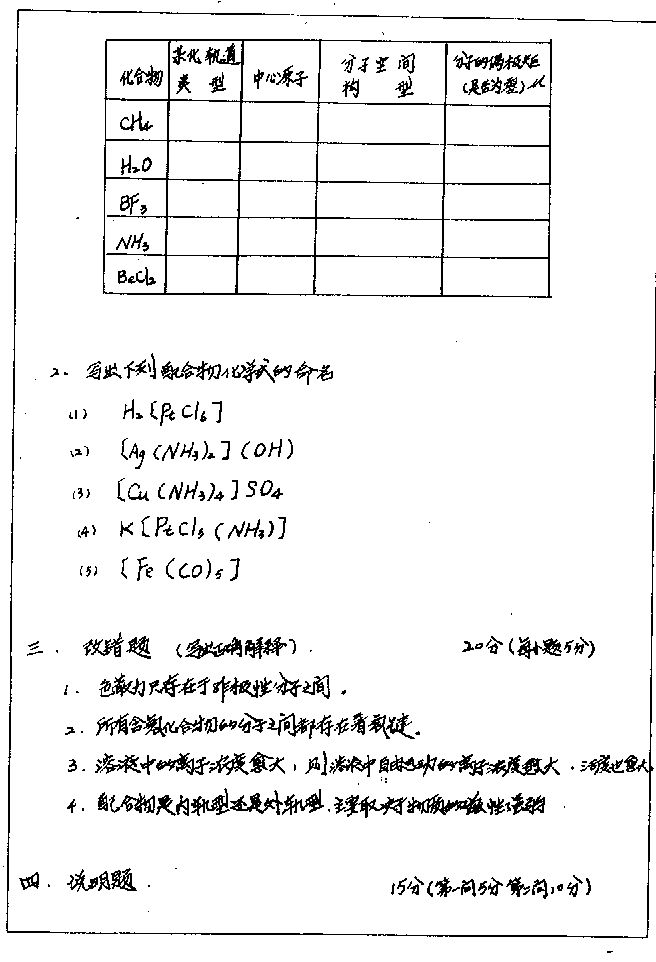 化合物 杂化轨道类型 中心原子 分子空间构型 分子的偶极矩(是否为零)μ
CH₄
H₂O
BF₃
NH₃
BeCl₂
2. 写出下列配合物化学式的命名
(1) H₂[PtCl₆]
(2) [Ag(NH₃)₂](OH)
(3) [Cu(NH₃)₄]SO₄
(4) K[PtCl₅(NH₃)]
(5) [Fe(CO)₅]
三. 改错题 (写出正确解释). 20分(每小题5分)
1. 色散力只存在于非极性分子之间。
2. 所有含氢化合物的分子之间都存在着氢键。
3. 溶液中的离子浓度愈大,则溶液中自由运动的离子浓度愈大,活度也愈大.
4. 配合物是内轨型还是外轨型.主要取决于物质的磁性强弱
四. 说明题. 15分(第一问5分 第二问10分)